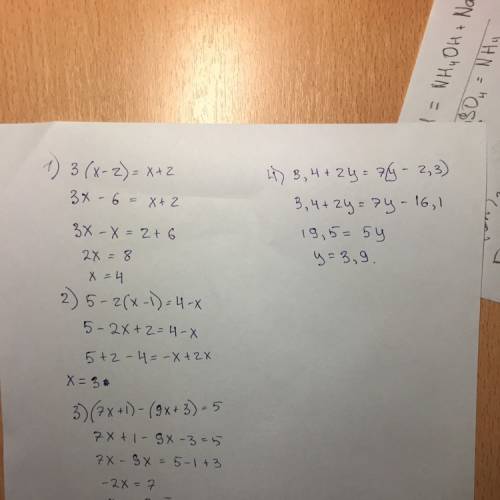 1) 3(x-2)= x+2
3x - 6 = x+2
3x - x = 2+6
2x = 8
x = 4
2) 5 - 2(x-1)=4-x
5 - 2x+2=4-x
5+2-4=-x+2x
x = 3
3) (7x+1)-(9x+3)=5
7x+1-9x-3=5
7x-9x = 5-1+3
-2x = 7
4) 3,4+2y=7(y-2,3)
3,4+2y=7y-16,1
19,5= 5y
y=3,9.
= NH4OH + Na
SO4 = NH4